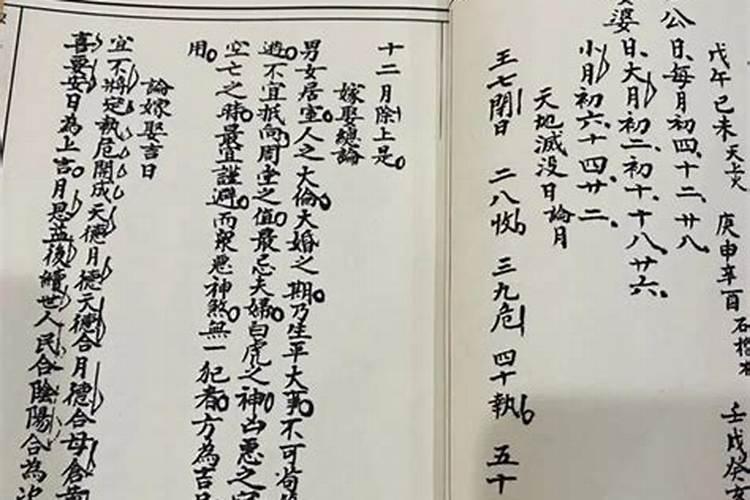 戊午己未天上火 庚申辛酉石榴木 壬戌癸亥
公日、每月初四十二、廿八
婆日、大月初二初十、十八、廿六、
小月初六十四廿二、
天地滅没日論月
王七閉日 二八收 三九危 四十執 五十
十二月除上是
嫁娶總論
男女居室人之大倫大婚之期乃生平大事不可苟
避不宜抵向周堂之值最忌夫婦白虎之神凶惡之
空亡之時最宜謹避而眾惡神煞無一犯者方為吉
用
論嫁娶吉日
宜不將定執危開成天德月德天德合月德合母倉
喜要安日為上吉月恩益後續世人民合陰陽合為次